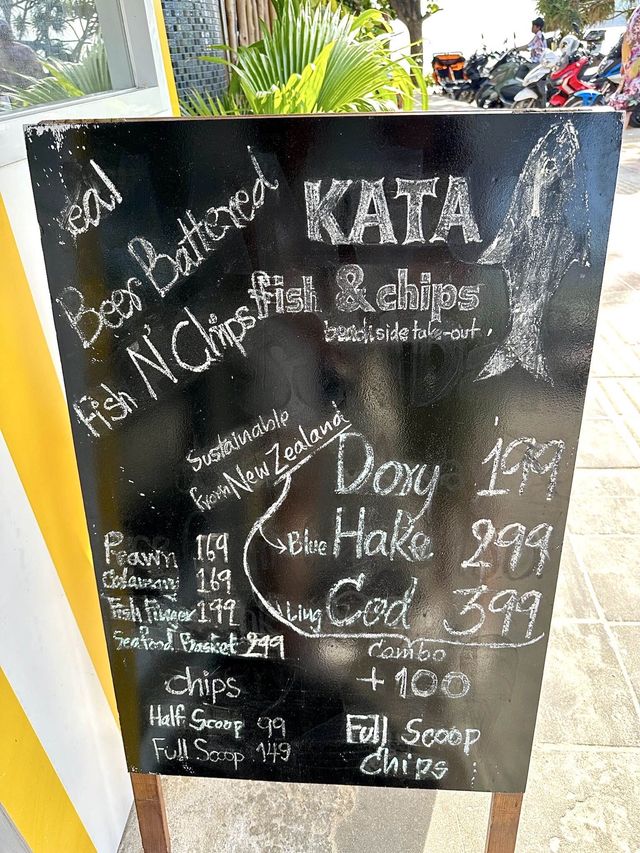 eal
Beer Battered
Fish N' Chips
KATA
fish & chips
beach side take-out
Sustainable
from New Zealand
Dory 199
Blue Hake 299
Ling Cod 399
Combo
+100
Full Scoop
Chips
Prawn 169
Calamary 169
Fish Finger 199
Seafood Basket 299
chips
Half Scoop 99
Full Scoop 149